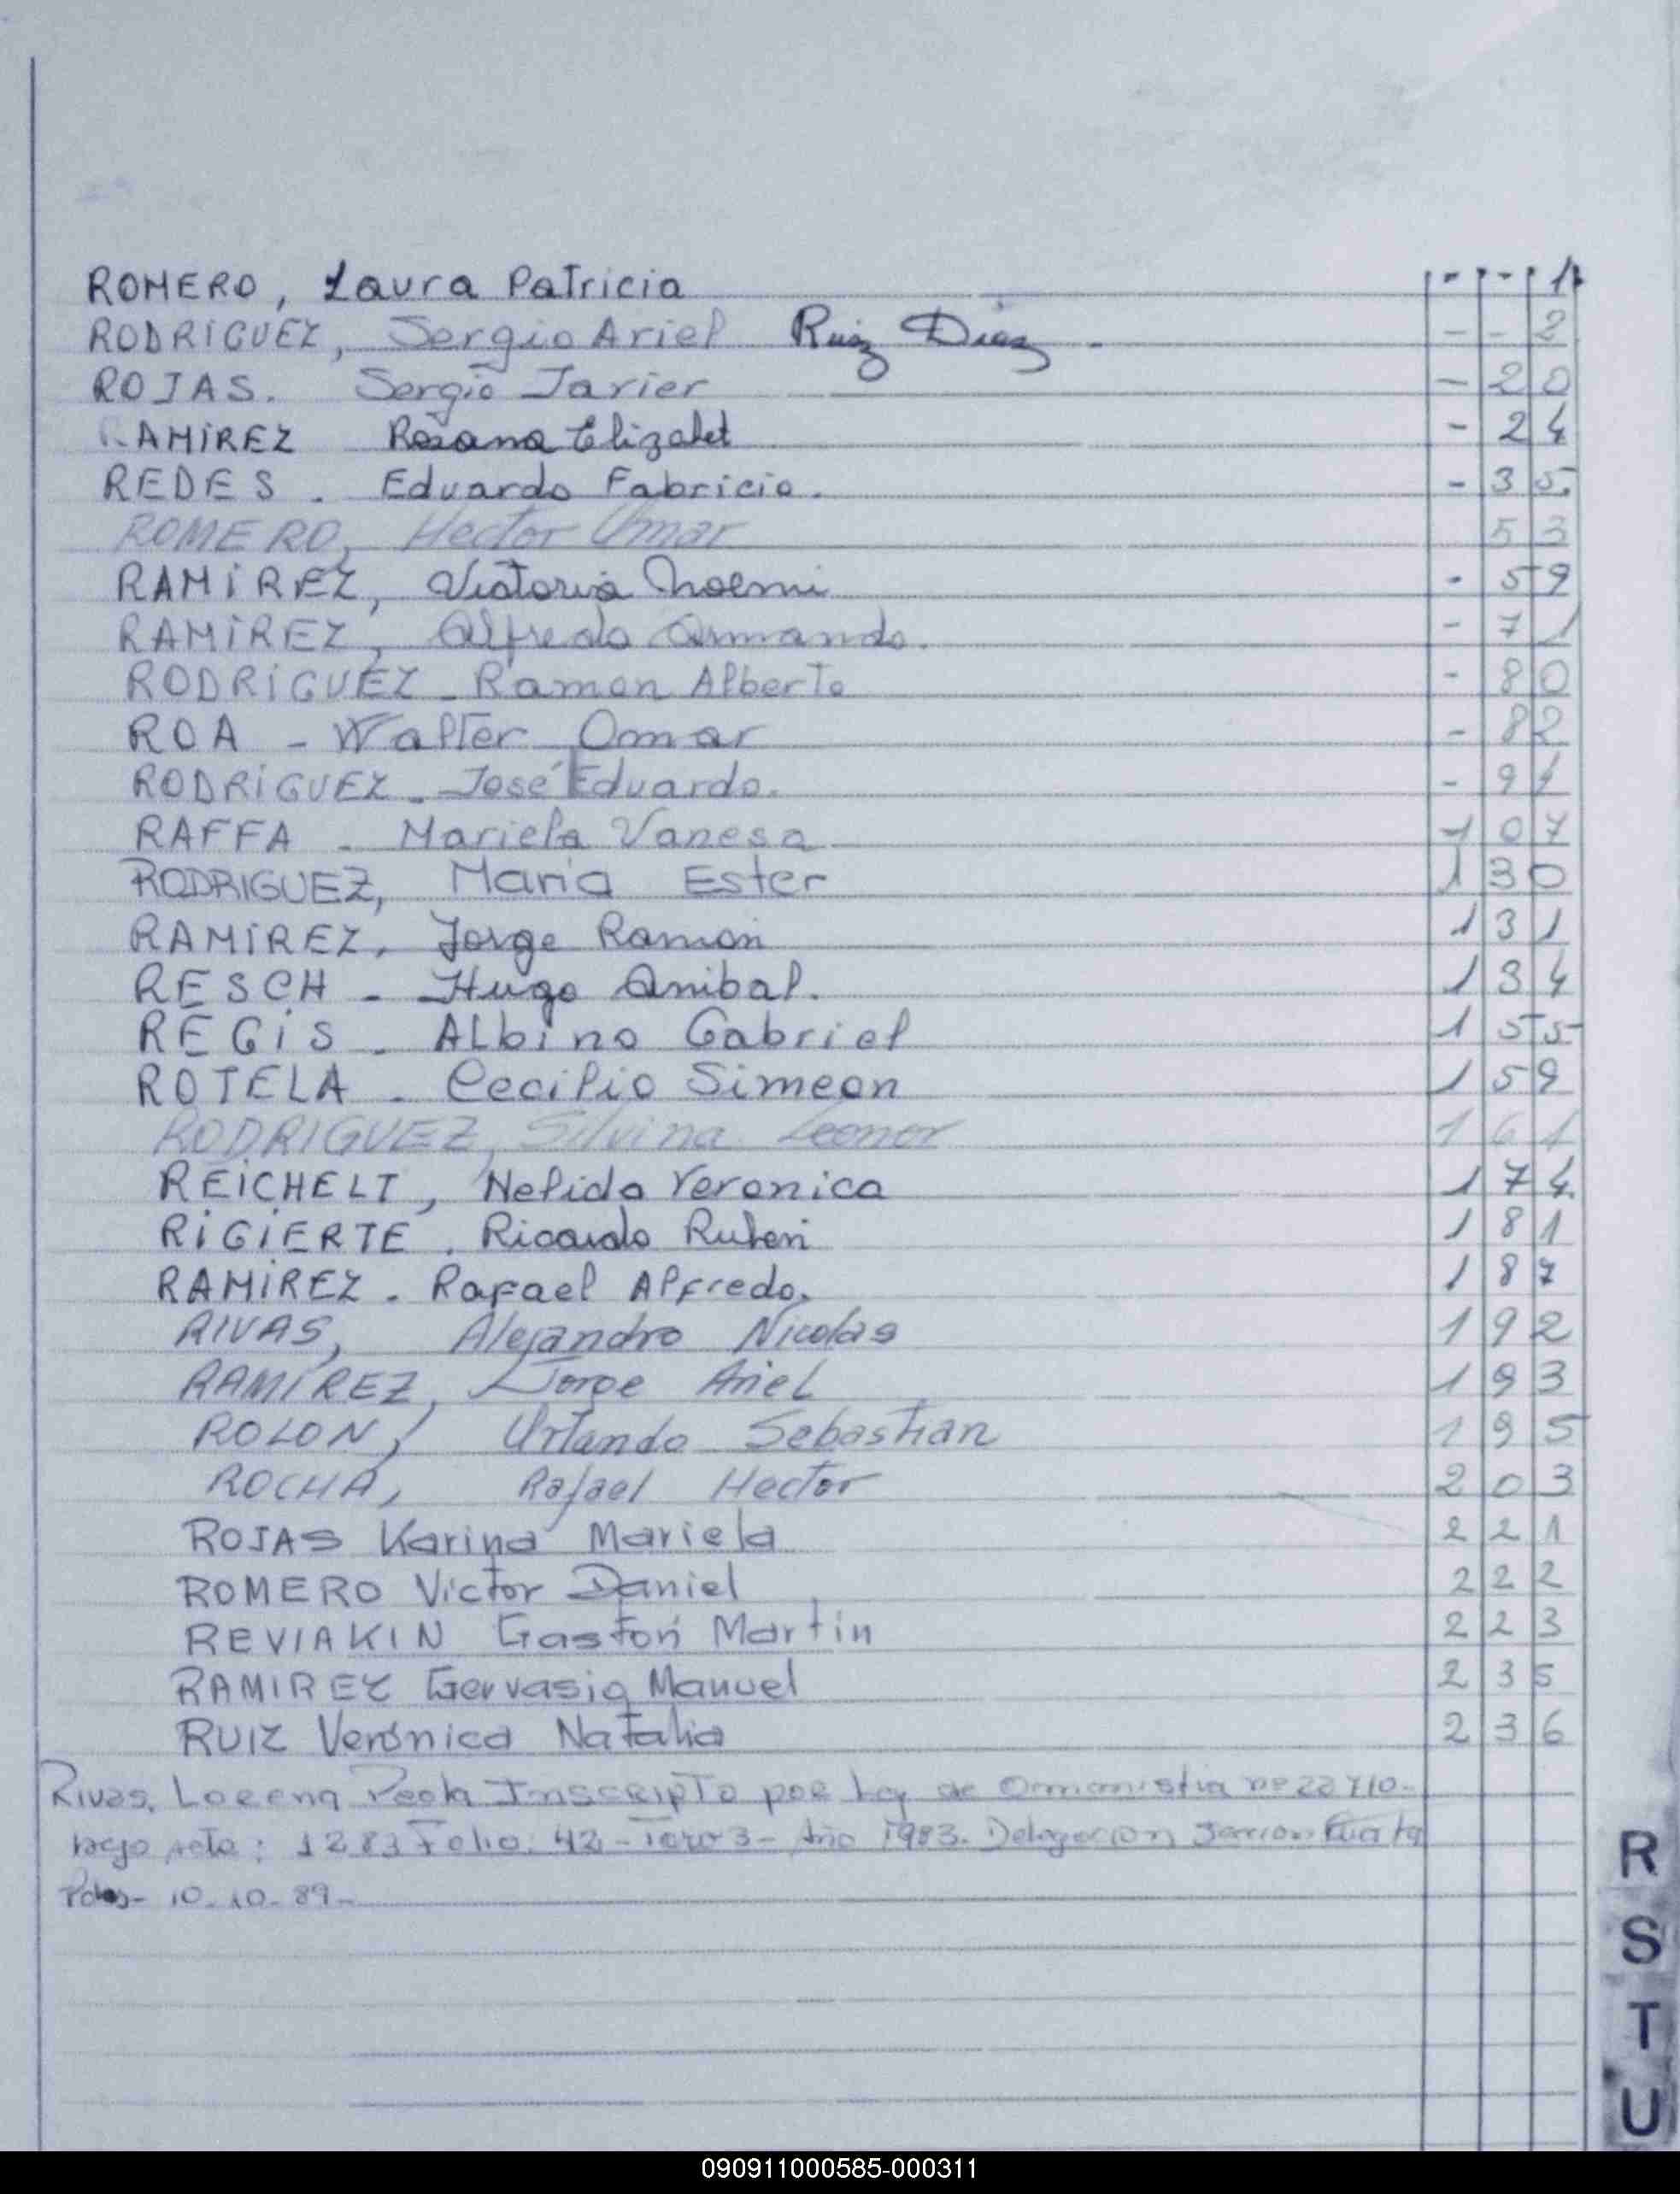 ROMERO, Laura Patricia - - 1
RODRIGUEZ, Sergio Ariel Ruiz Diaz - - - 2
ROJAS. Sergio Javier - 2 0
RAMIREZ Rosana Elizabet - 2 4
REDES. Eduardo Fabricio. - 3 5.
ROMERO, Hector Omar 5 3
RAMIREZ, Victoria Noemi - 5 9
RAMIREZ, Alfredo Armando. - 7 1
RODRIGUEZ - Ramon Alberto - 8 0
ROA - Walter Omar - 8 2
RODRIGUEZ - José Eduardo. - 9 1
RAFFA - Mariela Vanesa 1 0 7
RODRIGUEZ, Maria Ester 1 3 0
RAMIREZ, Jorge Ramón 1 3 1
RESCH - Hugo Anibal. 1 3 4
REGIS - Albino Gabriel 1 5 5
ROTELA - Cecilio Simeon 1 5 9
RODRIGUEZ, Silvina Leonor 1 6 1
REICHELT, Nelida Veronica 1 7 4.
RIGIERTE. Ricardo Ruben 1 8 1
RAMIREZ - Rafael Alfredo. 1 8 7
RIVAS, Alejandro Nicolás 1 9 2
RAMÍREZ, Jorge Ariel 1 9 3
ROLON, Orlando Sebastian 1 9 5
ROCHA, Rafael Hector 2 0 3
ROJAS Karina Mariela 2 2 1
ROMERO Victor Daniel 2 2 2
REVIAKIN Gastón Martin 2 2 3
RAMIREZ Gervasio Manuel 2 3 5
RUIZ Verónica Natalia 2 3 6
Rivas, Lorena Inscripto por Ley de nº 22 710-
bajo acta: 1283 Folio: 42 - Tomo 3 - Año 1983. Delegacion
10-10-89-
R
S
T
U
090911000585-000311